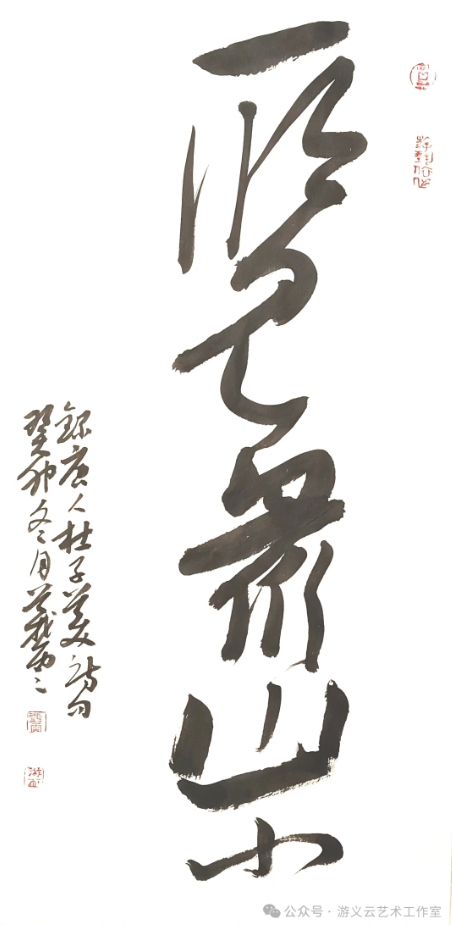 一览众山小
録唐人杜子美诗句
癸卯冬月义云
公众号 · 游义云艺术工作室